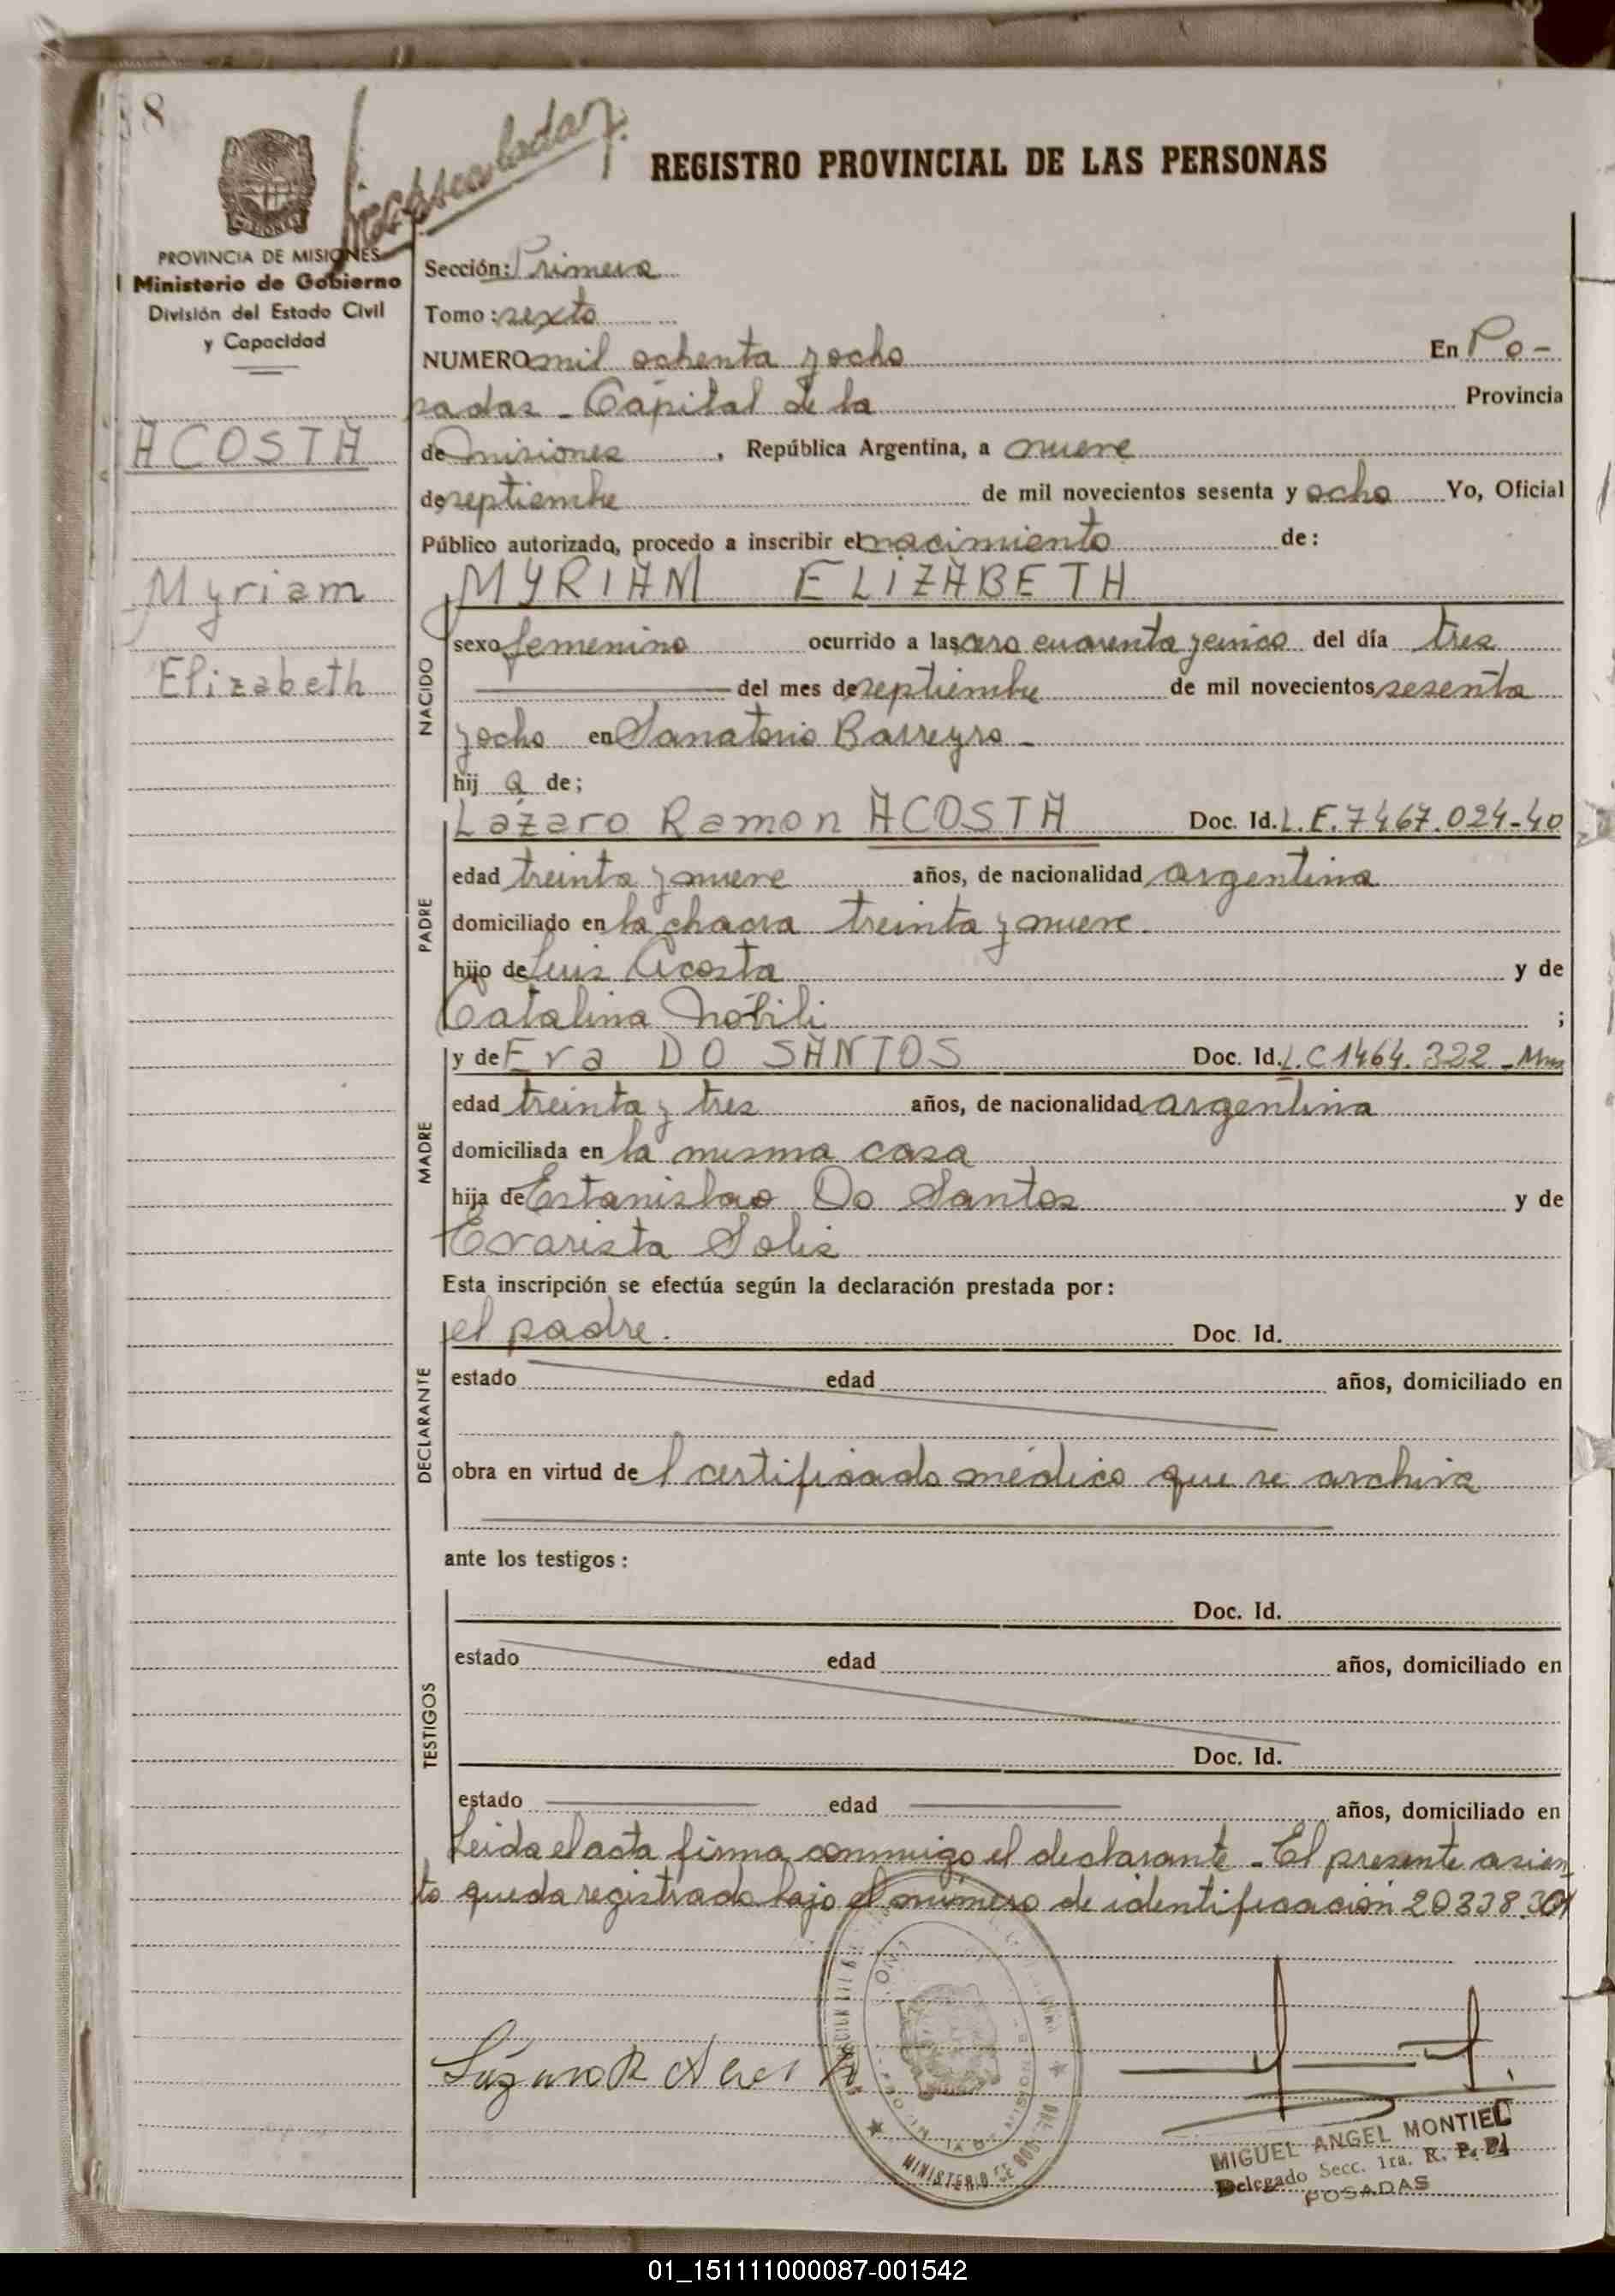 8
REGISTRO PROVINCIAL DE LAS PERSONAS
PROVINCIA DE MISIONES
Ministerio de Gobierno
División del Estado Civil
y Capacidad
ACOSTA
Myriam
Elizabeth
Sección: Primera
Tomo: sexto
NUMERO mil ochenta y ocho En Po-
sadas - Capital de la Provincia
de misiones, República Argentina, a nueve
de septiembre de mil novecientos sesenta y ocho Yo, Oficial
Público autorizado, procedo a inscribir el nacimiento de:
MYRIAM ELIZABETH
NACIDO
sexo femenino ocurrido a las cero cuarenta y cinco del día tres
del mes de septiembre de mil novecientos sesenta
y ocho en Sanatorio Barreyro -
hij a de;
PADRE
Lázaro Ramon ACOSTA Doc. Id. L.E. 7467.024-40
edad treinta y nueve años, de nacionalidad argentina
domiciliado en la chacra treinta y nueve.
hijo de Luis Acosta y de
Catalina Nóbili ;
MADRE
y de Eva DO SANTOS Doc. Id. L.C 1464.322 - Mnes
edad treinta y tres años, de nacionalidad argentina
domiciliada en la misma casa
hija de Estanislao Do Santos y de
Evarista Solis
Esta inscripción se efectúa según la declaración prestada por:
DECLARANTE
el padre. Doc. Id.
estado edad años, domiciliado en
obra en virtud de l certificado médico que se archiva
ante los testigos:
TESTIGOS
Doc. Id.
estado edad años, domiciliado en
Doc. Id.
estado edad años, domiciliado en
Leida el acta firma conmigo el declarante - El presente asien
to queda registrado bajo el número de identificación 20338.301
Lázaro R Acosta
MINISTERIO DE GOB
MIGUEL ANGEL MONTIEL
Delegado Secc. 1ra. R. P. P.
POSADAS
01_151111000087-001542